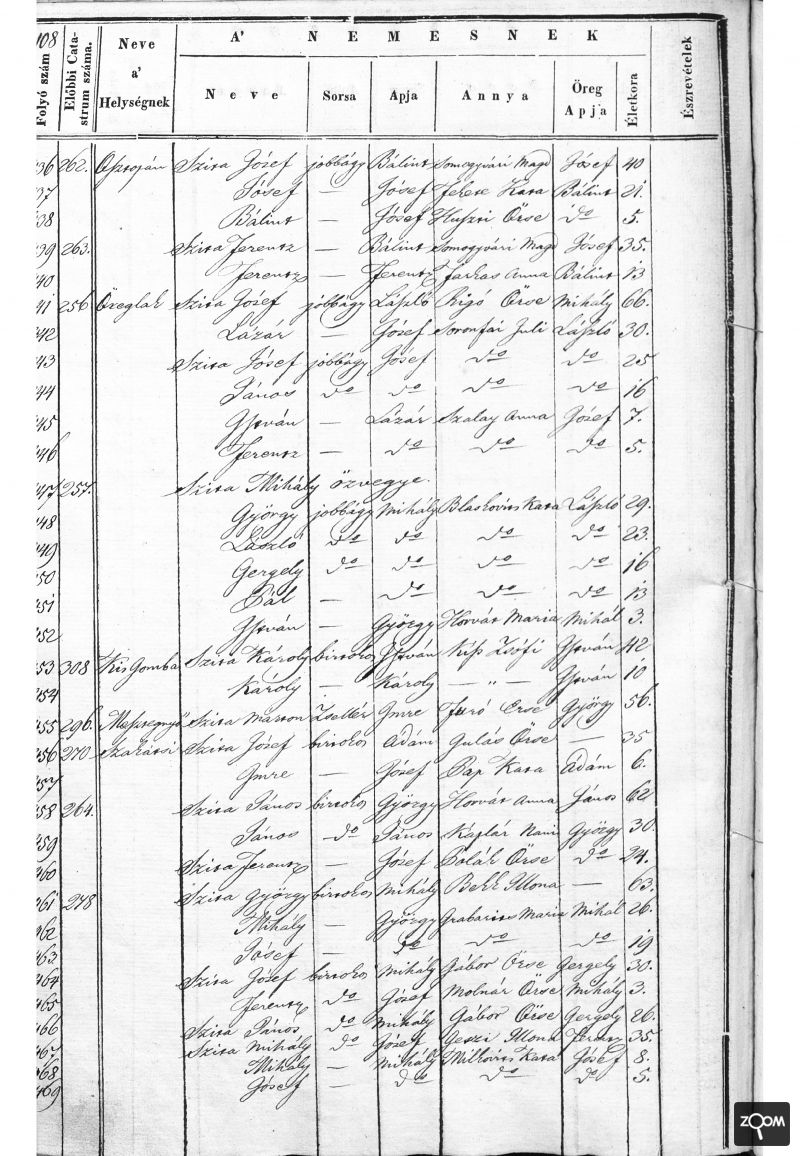 108
A' NEMESNEK
Folyó szám Előbbi Catastrum száma. Neve a' Helységnek Neve Sorsa Apja Annya Öreg Apja Életkora Észrevételek
36 262. Szita Jósef jobbágy Bálint Somogyvári Magd Jósef 40
37 Jósef — Jósef Fekete Kata Bálint 21.
38 Bálint — Jósef Huszti Örse do 5.
39 263. Szita Ferentz — Bálint Somogyvári Magd Jósef 35.
40 Ferentz — Ferentz Farkas Anna Bálint 13
41 256 Öreglak Szita Jósef jobbágy László Rigó Örse Mihály 66.
42 Lázár — Josef Soronfai Juli László 30.
43 Szita Jósef jobbágy Jósef do do 25
44 János do do do do 16
45 Istvan — Lázár Szalay Anna Jósef 7.
46 Ferentz — do do do 5.
47 257. Szita Mihály özvegye.
48 György jobbágy Mihály Blaskovits Kata László 29.
49 László do do do do 23.
50 Gergely do do do do 16
51 Pál — do do do 13
52 István — György Horvát Maria Mihál 3.
53 308 Kis Gomba Szita Károly birtokos István Kiss Zsófi István 42
54 Károly — Károly — " — István 10
455 296. Szita Marton Zsellér Imre Juró Erse György 56.
456 270 Szakátsi Szita Jósef birtokos Adám Gulás Örse — 35
457 Imre — Jósef Pap Kata Adám 6.
458 264. Szita János birtokos György Horvát Anna János 62
459 János do János Káplár Nani György 30.
460 Szita Ferentz — Jósef Polák Örse do 24.
461 278 Szita György birtokos Mihály Bekk Illona — 63.
462 Mihály — György Grabarits Maria Mihál 26.
463. Jósef — do do do 19
464 Szita Jósef birtokos Mihály Gábor Örse Gergely 30.
465 Ferentz do Jósef Molnár Örse Mihály 3.
466 Szita János do Mihály Gábor Örse Gergely 26.
467 Szita Mihály do Josef Geszi Illona Ferentz 35.
468 Mihály — Mihály Milkovits Kata Jósef 8.
469 Jósef — do do do 5.
ZOOM